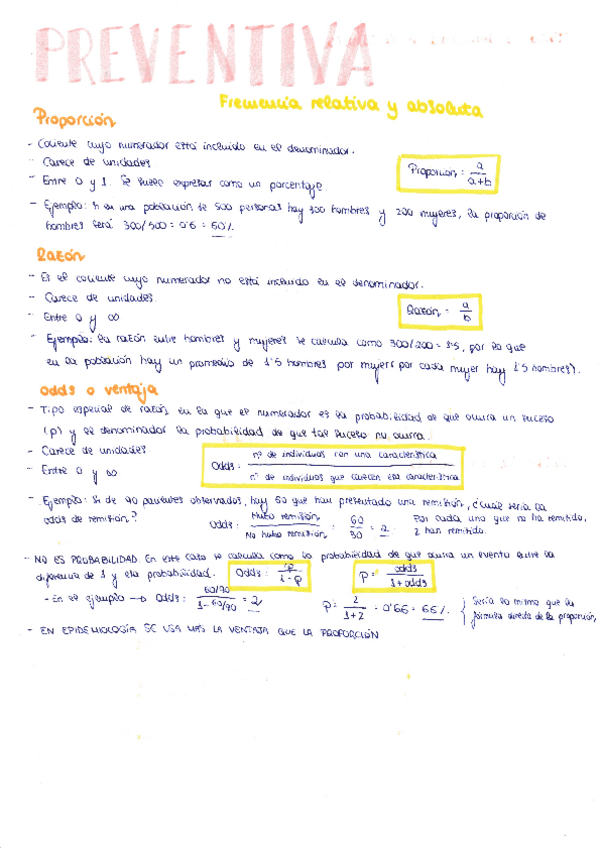 PREVENTIVA
Frecuencia relativa y absoluta
Proporción
- Cociente cuyo numerador está incluido en el denominador.
- Carece de unidades
- Entre 0 y 1. Se suele expresar como un porcentaje
Proporción: a/a+b
- Ejemplo: si en una población de 500 personas hay 300 hombres y 200 mujeres, la proporción de
hombres será 300/500 = 0'6 = 60%
Razón
- Es el cociente cuyo numerador no está incluido en el denominador.
- Carece de unidades
- Entre 0 y ∞
Razón = a/b
- Ejemplo: la razón entre hombres y mujeres se calcula como 300/200 = 1'5, por lo que
en la población hay un promedio de 1'5 hombres por mujer (por cada mujer hay 1'5 hombres).
Odds o ventaja
- Tipo especial de razón en la que el numerador es la probabilidad de que ocurra un suceso
(p) y el denominador la probabilidad de que tal suceso no ocurra.
- Carece de unidades
- Entre 0 y ∞
Odds: nº de individuos con una característica / nº de individuos que carecen esa característica
- Ejemplo: Si de 90 pacientes observados, hay 60 que han presentado una remisión, ¿cuál sería la
odds de remisión?
Odds: Hubo remisión / No hubo remisión = 60/30 = 2
Por cada uno que no ha remitido,
2 han remitido.
- NO ES PROBABILIDAD. En este caso se calcula como la probabilidad de que ocurra un evento entre la
diferencia de 1 y esa probabilidad.
Odds: p/1-p
P = odds/1+odds
- En el ejemplo → Odds: 60/90 / 1-60/90 = 2
P = 2/1+2 = 0'66 = 66%
Sería lo mismo que la
fórmula directa de la proporción
- EN EPIDEMIOLOGÍA SE USA MAS LA VENTAJA QUE LA PROPORCIÓN